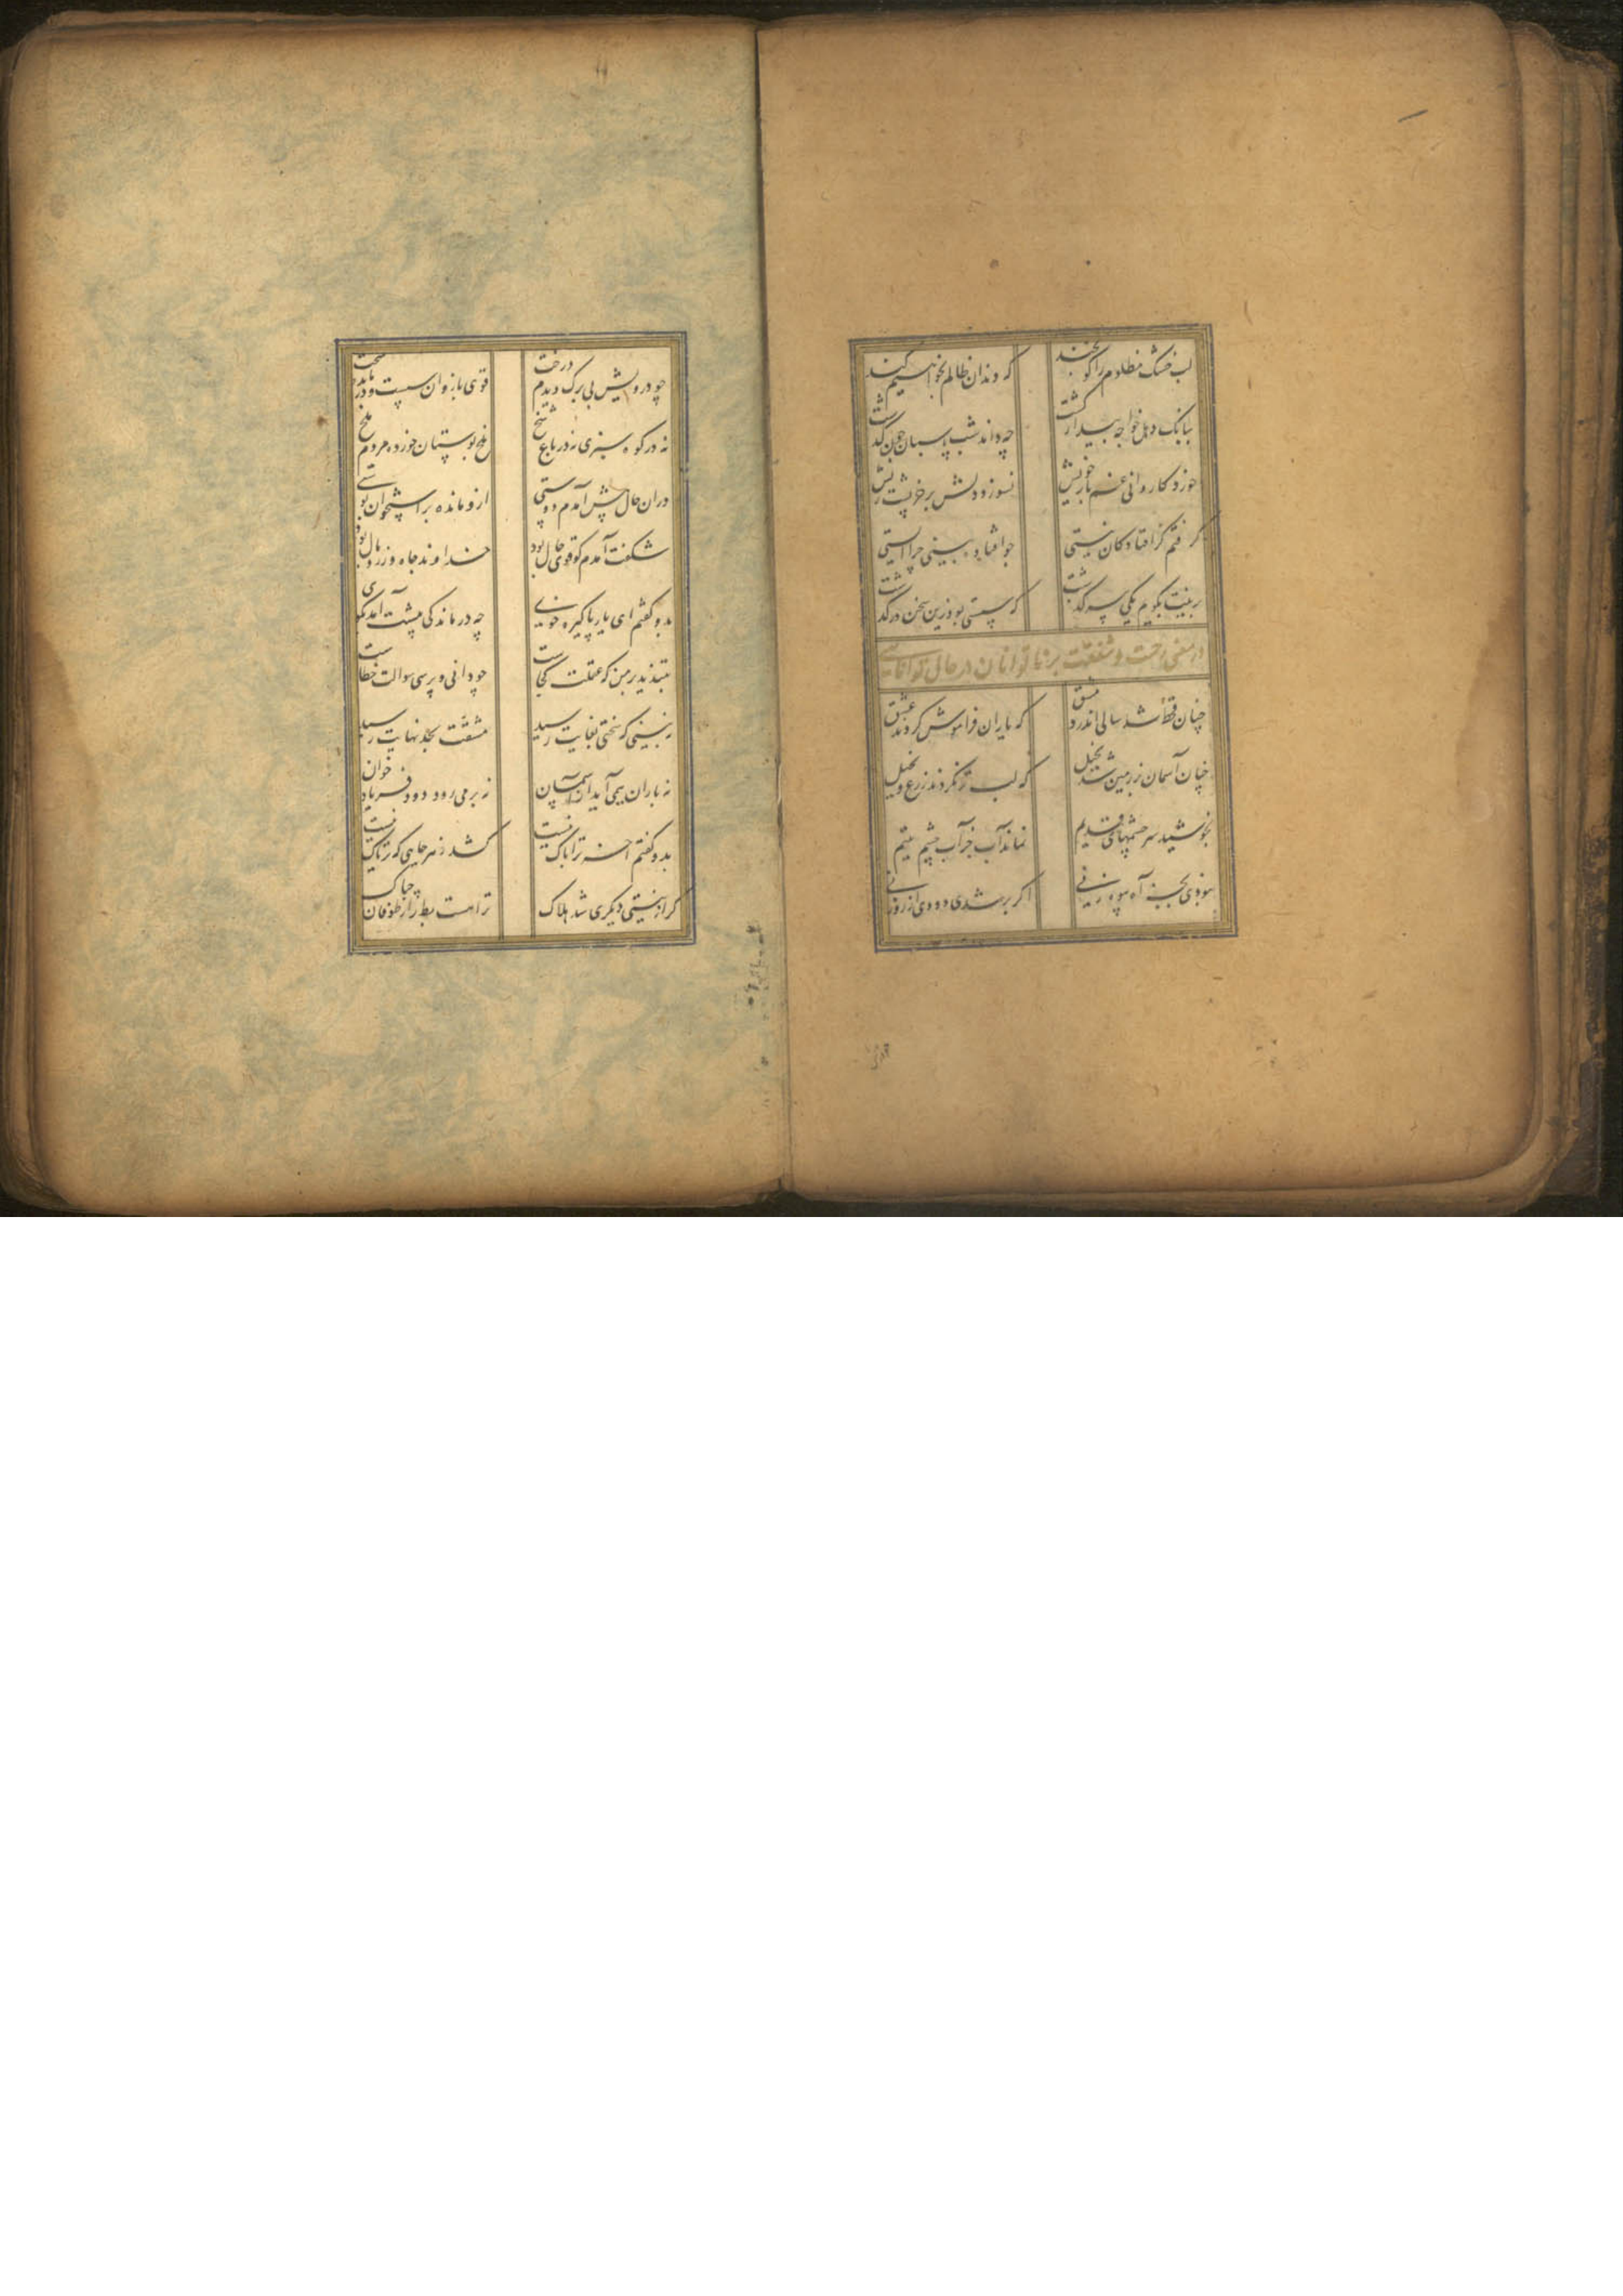 لب خشک مظلوم را کو بخند
که دندان ظالم بخواهیم کند
ببانک دهل خواجه بیدار کشت
چه داند شب پاسبان چون کذشت
خورد کاروانی غم بار خویش
نسوزد دلش بر خر پشت ریش
کرفتم کز افتادکان نیستی
چو افتاده بینی چرا ایستی
برینت بکویم یکی سرکذشت
که سستی بود زین سخن درکذشت
در معنی رحمت و شفقت بر ناتوانان در حال توانایی
چنان قحط شد سالی اندر دمشق
که یاران فراموش کردند عشق
چنان آسمان بر زمین شد بخیل
که لب تر نکردند زرع و نخیل
بخوشید سرچشمهای قدیم
نماند آب جز آب چشم یتیم
نبودی بجز آه بیوه زنی
اکر بر شدی دودی از روزنی
چو درویش بی برک دیدم درخت
قوی بازوان سست و درمانده سخت
نه در کوه سبزی نه در باغ شخ
ملخ بوستان خورده مردم ملخ
دران حال پیش آمدم دوستی
ازو مانده بر استخوان پوستی
شکفت آمدم کو قوی حال بود
خداوند جاه و زر و مال بود
بدو کفتم ای یار پاکیزه خوی
چه درماندکی پیشت آمد بکوی
بتندید بر من که عقلت کجاست
چو دانی و پرسی سوالت خطاست
نبینی که سختی بغایت رسید
مشقت بحد نهایت رسید
نه باران همی آید از آسمان
نه بر می رود دود فریاد خوان
بدو کفتم آخر ترا باک نیست
کشد زهر جایی که تریاک نیست
کر از نیستی دیکری شد هلاک
ترا هست بط را ز طوفان چه باک